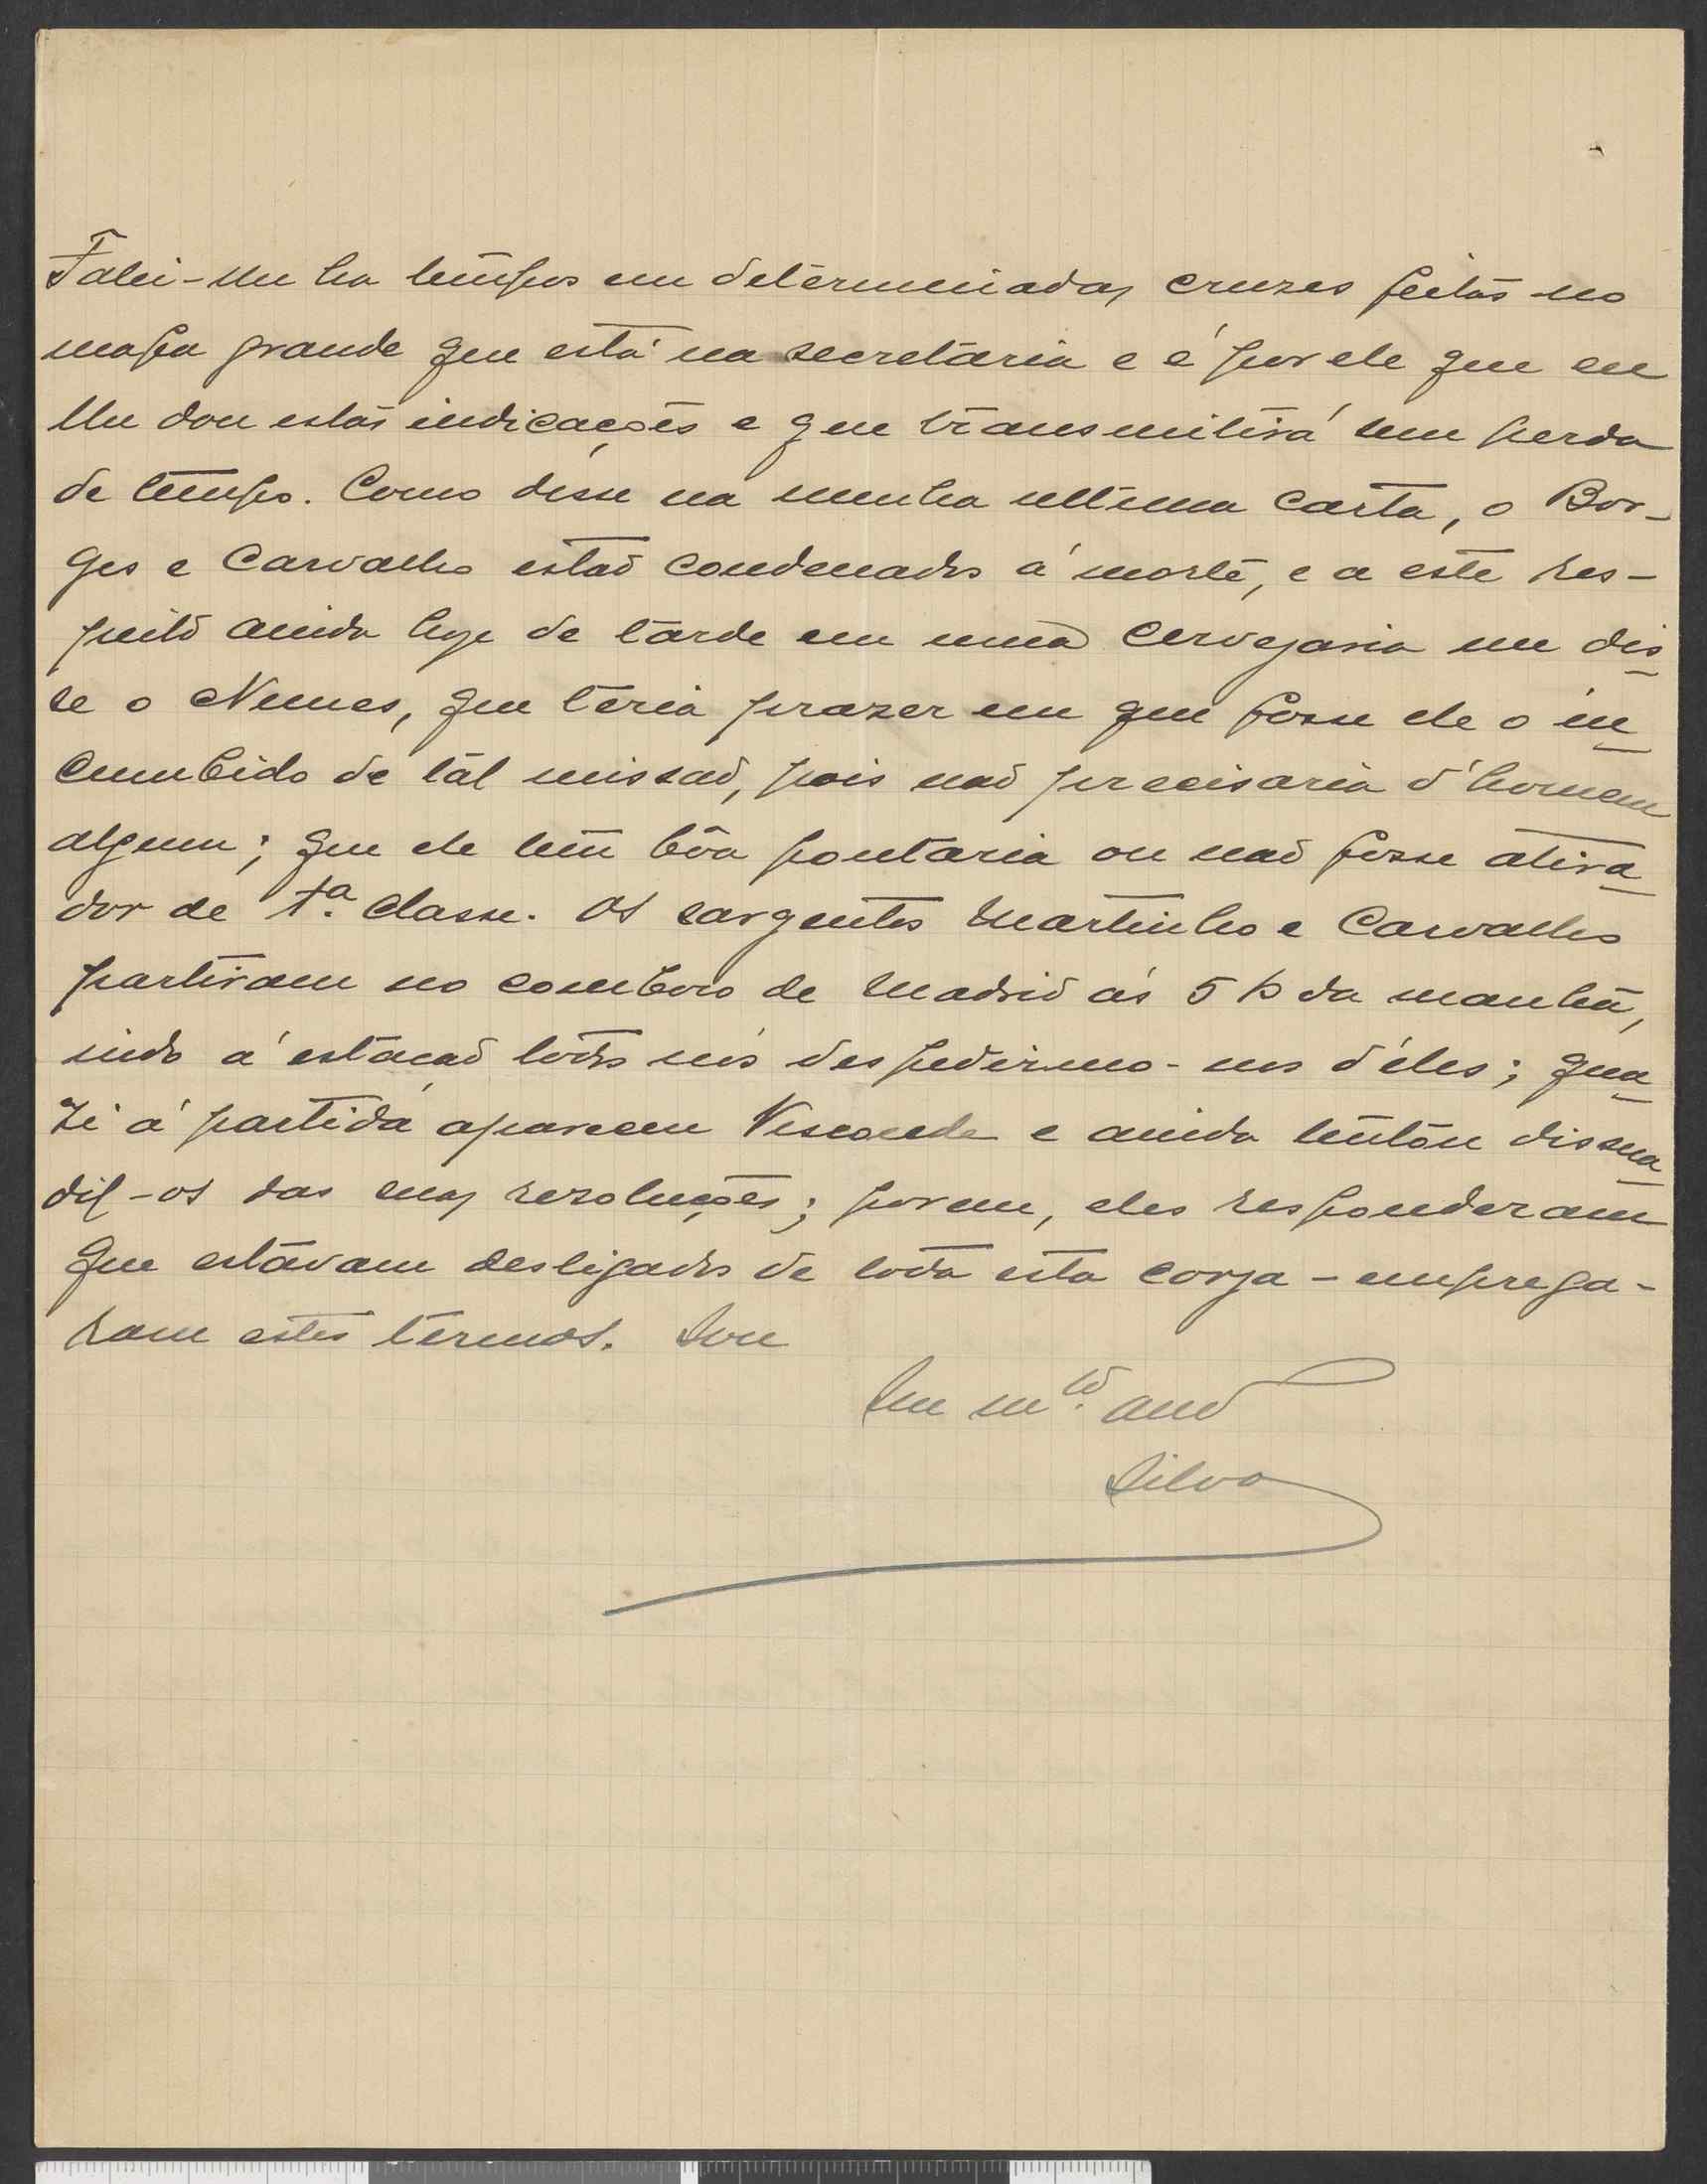 Falei-lhe ha tempos em determinadas cruzes feitas no
mapa grande que está na secretaria e é por ele que eu
lhe dou estas indicações e que transmitirá sem perda
de tempo. Como disse na minha ultima carta, o Bor-
ges e Carvalho estaõ condenados á morte, e a este res-
peito ainda hoje de tarde em uma cervejaria me dis-
se o Nunes, que teria prazer em que fosse ele o in-
cumbido de tál missaõ, pois naõ precisaria d'homem
algum; que ele tem bôa pontaria ou naõ fosse atira-
dor de 1ª. classe. Os sargentos Martinho e Carvalho
partiram no comboio de Madrid ás 5 h da manhã,
indo á estaçaõ todos nós despedirmo-nos d'éles; qua-
zi á partida apareceu Visconde e ainda tentou dissua-
dil-os das suas rezoluções; porem, eles responderam
que estávam desligados de toda esta corja - emprega-
ram estes termos. Sou
Seu mtº. amº
Silva